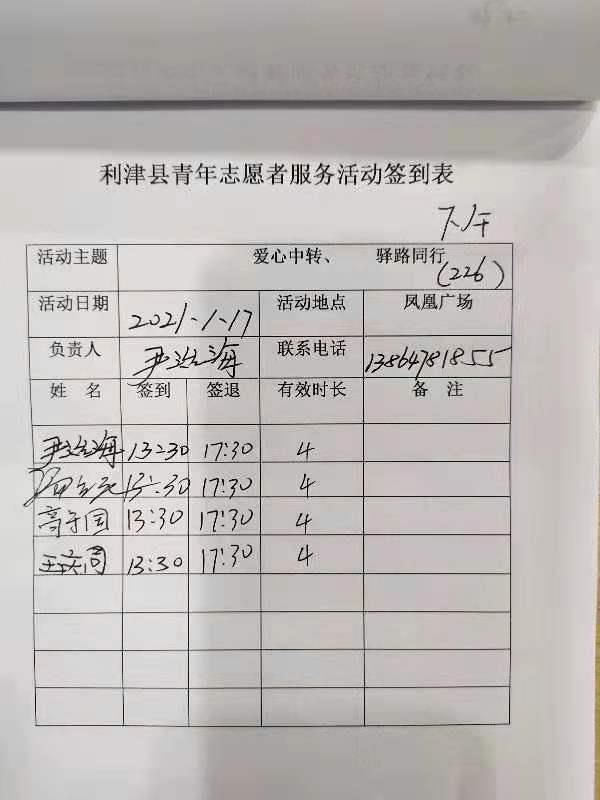 利津县青年志愿者服务活动签到表
下午
活动主题 爱心中转、 驿路同行 (226)
活动日期 2021-1-17 活动地点 凤凰广场
负责人 尹海 联系电话 13864781855
姓 名 签到 签退 有效时长 备 注
尹海 13:30 17:30 4
13:30 17:30 4
高子国 13:30 17:30 4
王庆同 13:30 17:30 4